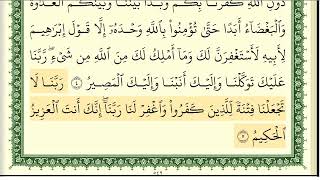 دُونِ ٱللَّهِ كَفَرْنَا بِكُمْ وَبَدَا بَيْنَنَا وَبَيْنَكُمُ ٱلْعَدَٰوَةُ
وَٱلْبَغْضَآءُ أَبَدًا حَتَّىٰ تُؤْمِنُوا۟ بِٱللَّهِ وَحْدَهُۥٓ إِلَّا قَوْلَ إِبْرَٰهِيمَ
لِأَبِيهِ لَأَسْتَغْفِرَنَّ لَكَ وَمَآ أَمْلِكُ لَكَ مِنَ ٱللَّهِ مِن شَىْءٍ ۖ رَّبَّنَا
عَلَيْكَ تَوَكَّلْنَا وَإِلَيْكَ أَنَبْنَا وَإِلَيْكَ ٱلْمَصِيرُ ٤ رَبَّنَا لَا
تَجْعَلْنَا فِتْنَةً لِّلَّذِينَ كَفَرُوا۟ وَٱغْفِرْ لَنَا رَبَّنَآ ۖ إِنَّكَ أَنتَ ٱلْعَزِيزُ
ٱلْحَكِيمُ ٥
٥٤٩